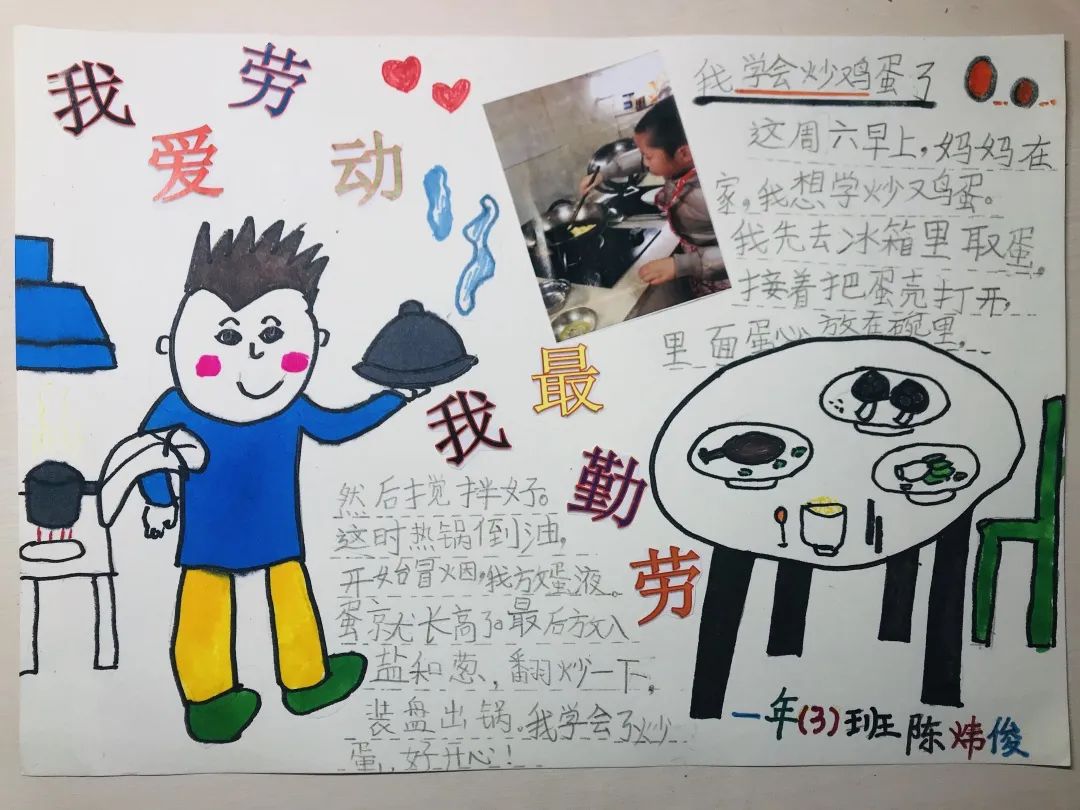 我爱劳动
我学会炒鸡蛋了
这周六早上,妈妈在
家,我想学炒又鸟蛋。
我先去冰箱里取蛋,
接着把蛋壳打开,
里面蛋心放在碗里,
我最勤劳
然后搅拌好。
这时热锅倒油,
开始冒烟,我放蛋液。
蛋就长高了。最后放入
盐和葱,翻炒一下,
装盘出锅。我学会了炒
蛋,好开心!
一年(3)班陈炜俊